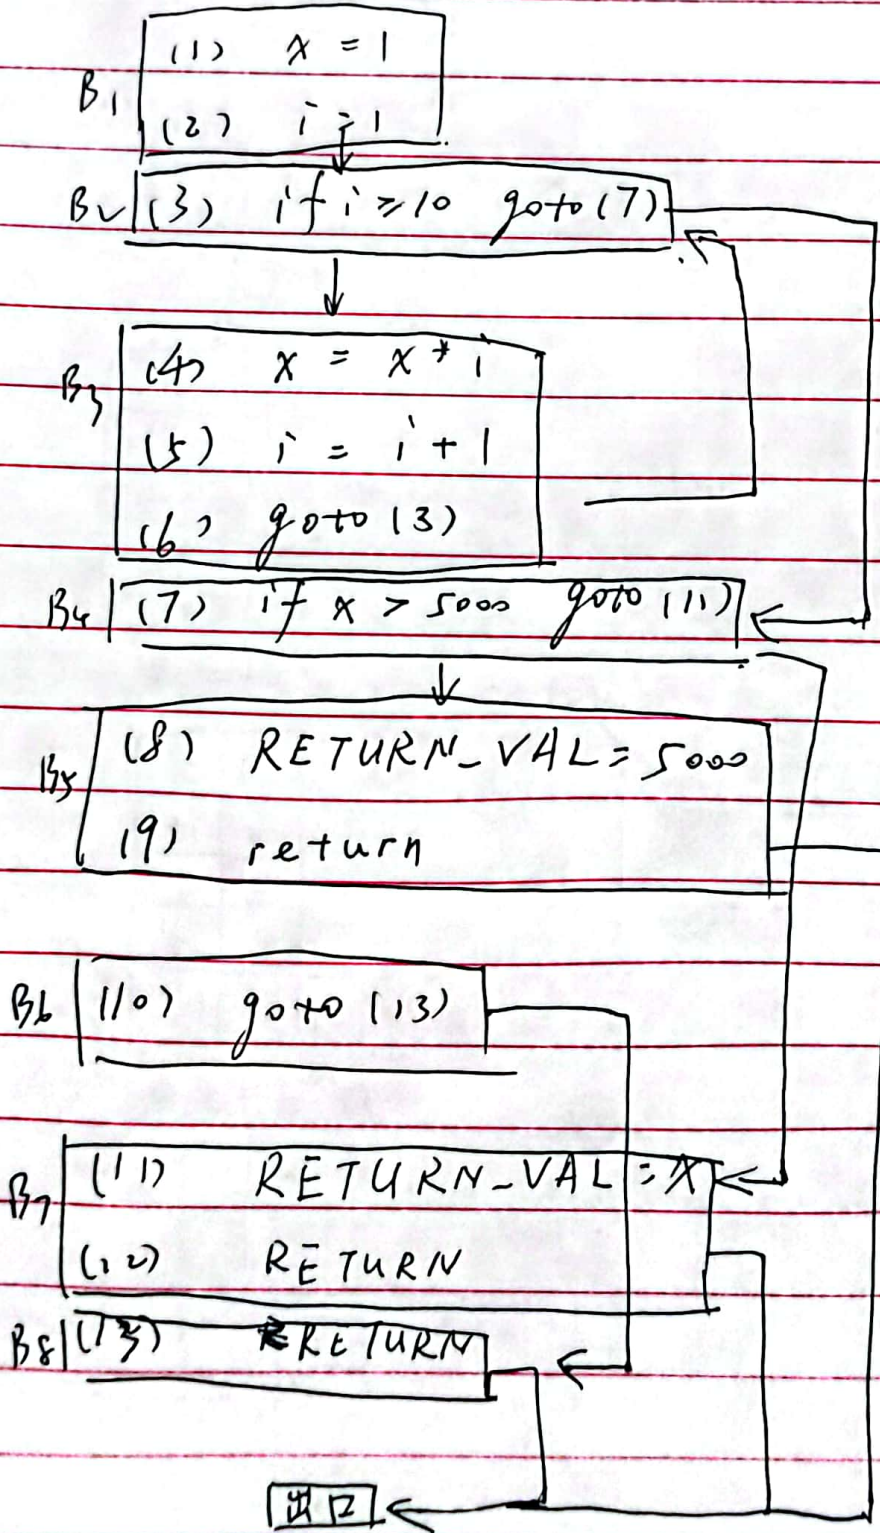 B1
(1) x = 1
(2) i = 1
B2 (3) if i ≥ 10 goto (7)
B3
(4) x = x * i
(5) i = i + 1
(6) goto (3)
B4 (7) if x > 5000 goto (11)
B5
(8) RETURN_VAL = 5000
(9) return
B6 (10) goto (13)
B7
(11) RETURN_VAL = X
(12) RETURN
B8 (13) RETURN
出口